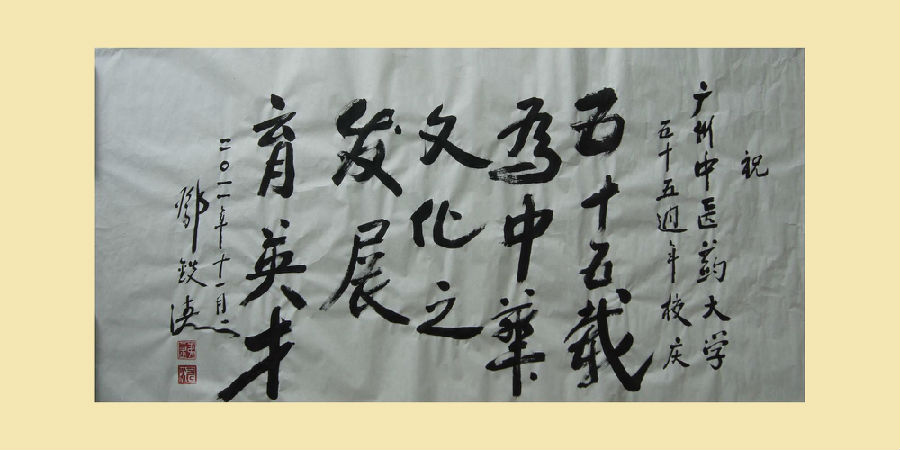 祝
广州中医药大学
五十五週年校庆
五十五载
为中华
文化之
发展
育英才
二〇一一年十一月
鄧铁涛